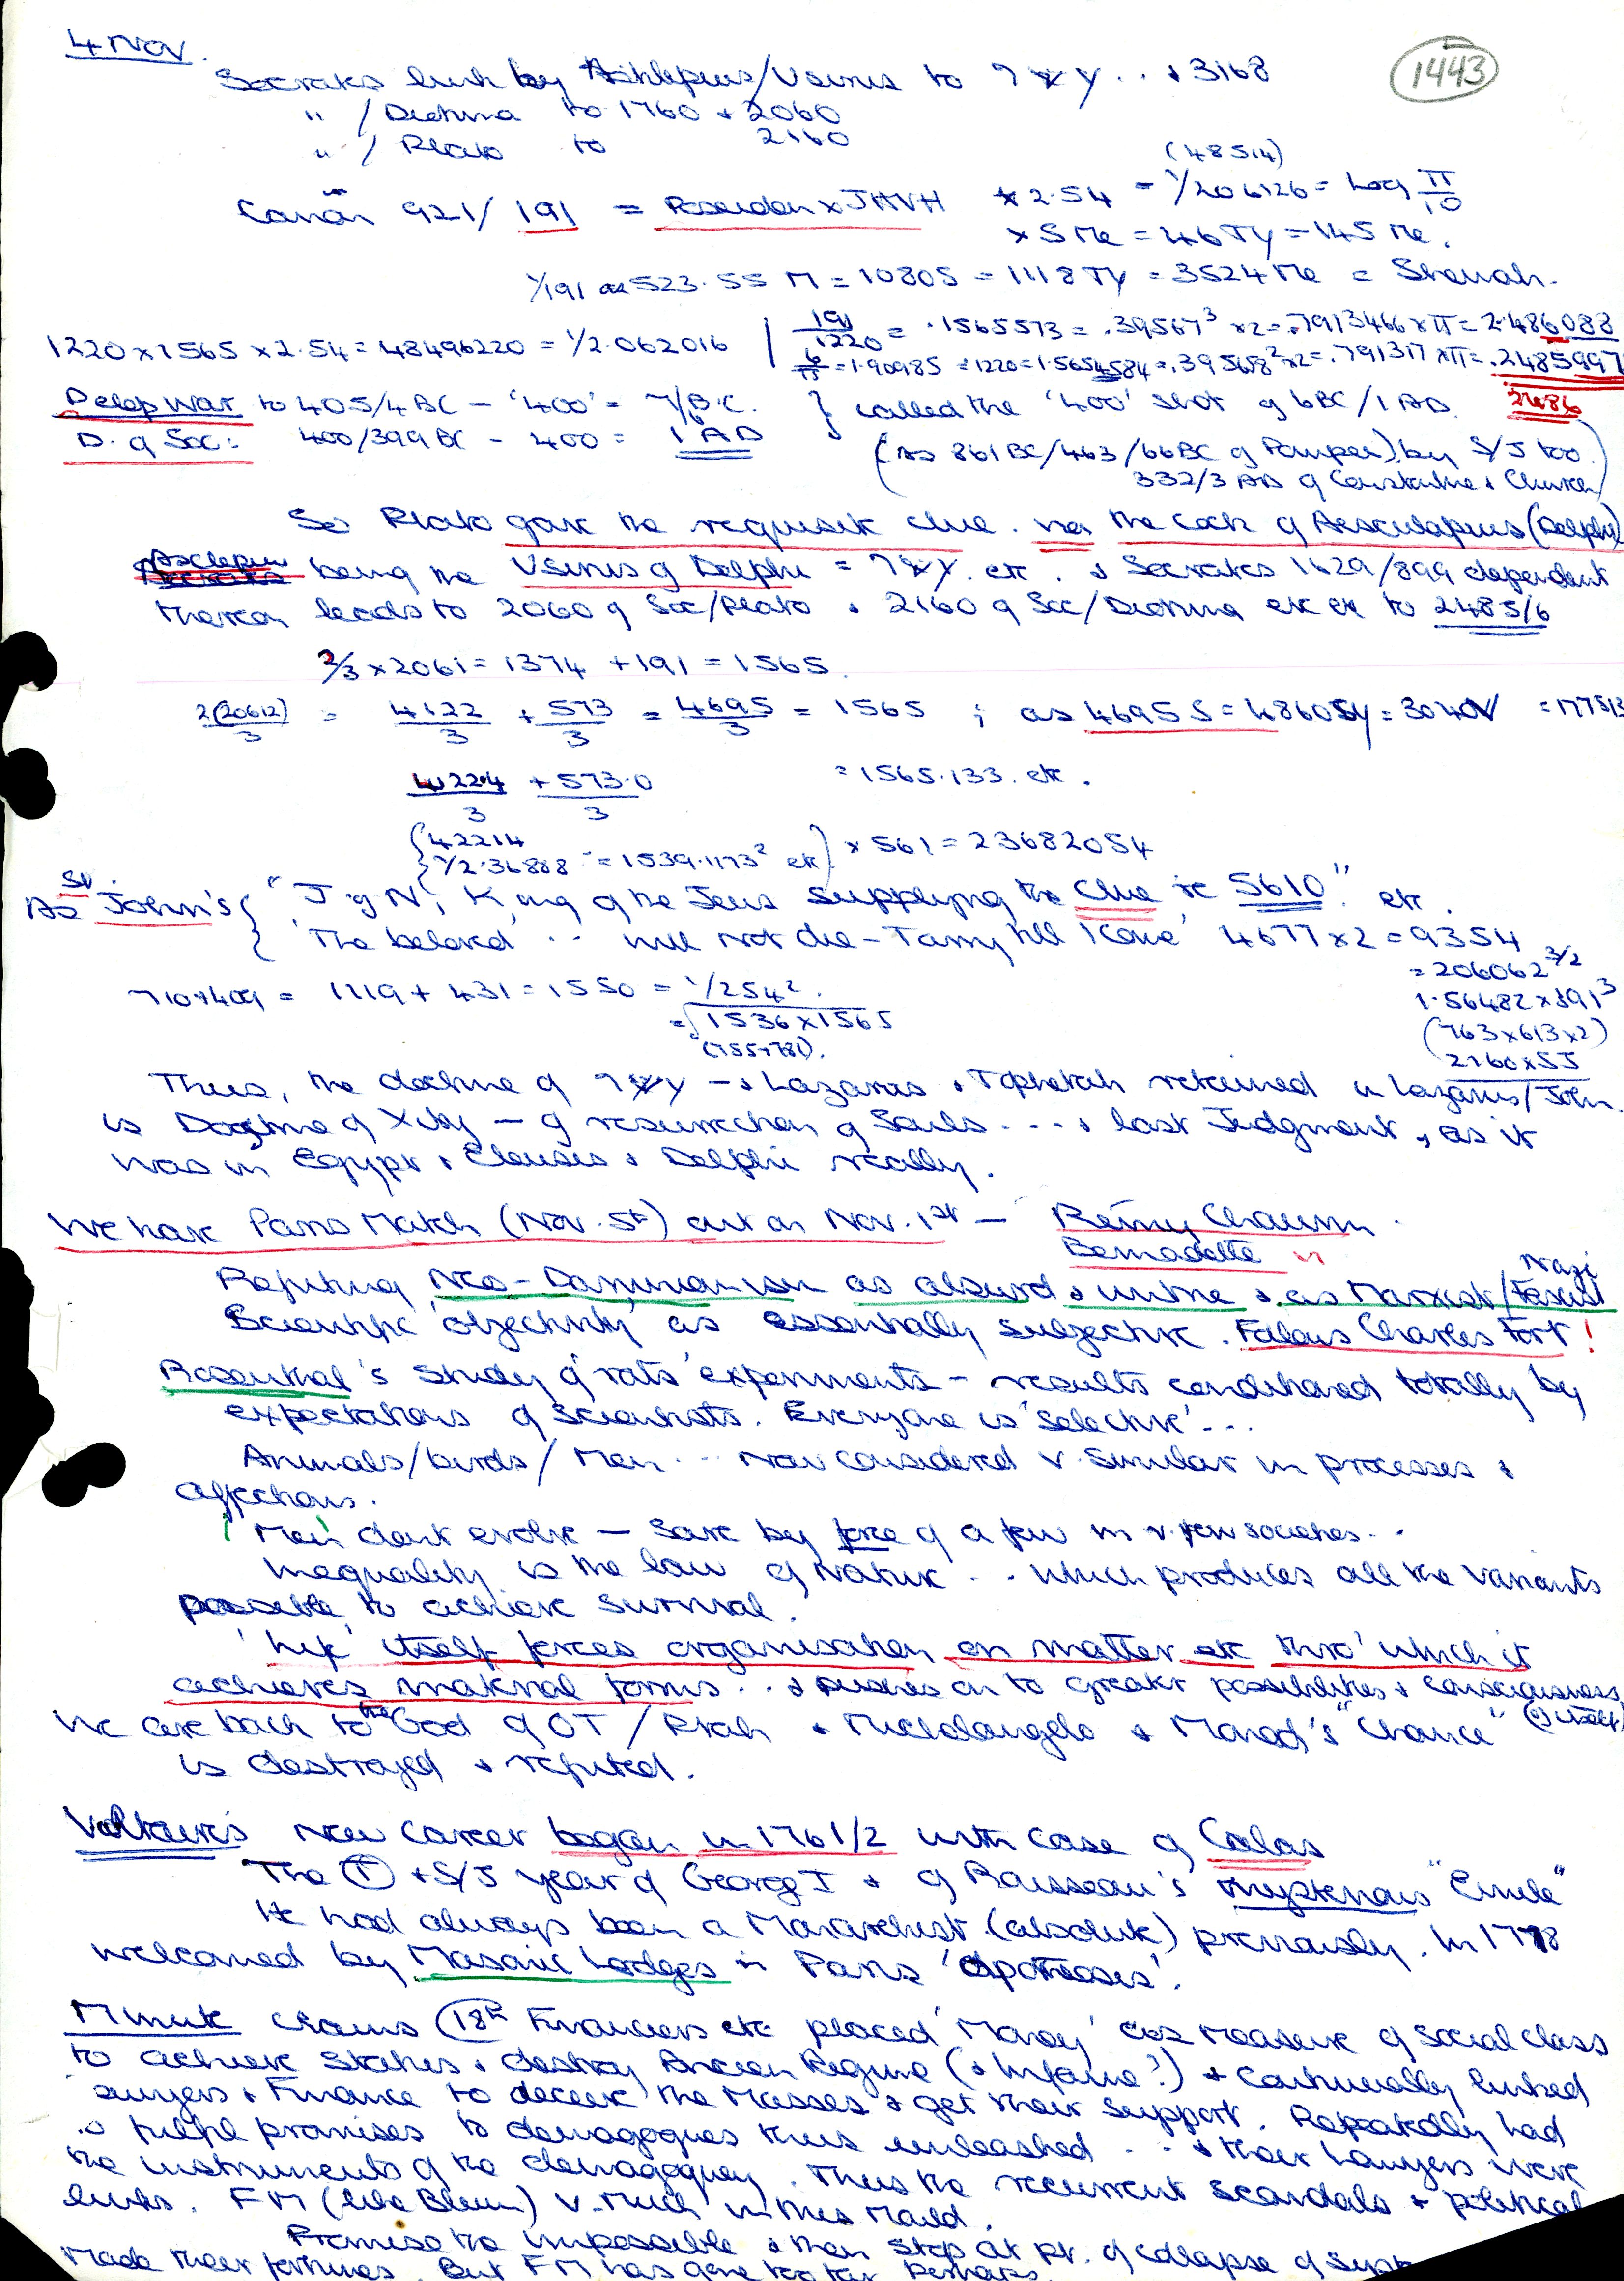 4 Nov.
1443
Socrates link by Asklepius/Usirus to 7 . . + 3168
" / Diotima to 1760 + 2060
" / Plato to 2160
(48514)
Canon 921/191 = Poseidon x JHVH x 2.54 = 1/206126 = Log π/10
x 5 Me = 46 TY = 145 Me.
1/191 523.55 M = 1080S = 1118 TY = 3524 Me = Shenah.
1220 x 1565 x 2.54 = 48496220 = 1/2.062016 | 191/1220 = .1565573 = .39567³ x2 = .7913466 x π = 2.486088
6/π = 1.90985 ÷ 1220 = 1.5654584 = .395658² x2 = .791317 x π = .2485997
2486
Delep War to 405/4 BC – '400' = 7/6 B.C. } called the '400' shot of 6BC/1 AD.
D. of Soc: 400/399 BC – 400 = 1 AD (As 861BC/463/66BC of Pompey) by S/J too.
332/3 AD of Constantine & Church)
So Plato gave the requisite clue. the Cock of Aesculapius (Delphi)
Asclepius being the Usirus of Delphi = 7 etc. & Socrates 1629/899 dependent
thereon leads to 2060 of Soc/Plato & 2160 of Soc/Diotima etc etc to 2485/6
2/3 x 2061 = 1374 + 191 = 1565.
2(20612)/3 = 4122/3 + 573/3 = 4695/3 = 1565 ; as 4695 S = 4860 SY = 3040V = 177513
4122.4/3 + 573.0/3 = 1565.133. etc.
{42214
{1/2.36888 = 1539.1173² etc} x 561 = 23682054
As St. John's { "J of N, King of the Jews supplying the Clue ie 5610" etc.
{ 'The beloved' . . will not die – Tarry till I come' 4677 x 2 = 9354
= 206062 3/2
1.56482 x 191³
(763 x 613 x 2)
2160 x 55
710 + 409 = 1119 + 431 = 1550 = 1/254².
= √1536 x 1565
(755+781).
Thus, the doctrine of 7 – & Lazarus & Tophetah retained in Lazarus/John.
is Dogma of Xity – of resurrection of Souls . . . . & last Judgment, as it
was in Egypt & Eleusis & Delphi really.
We have Paris Match (Nov. 5th) out on Nov. 1st – Rémy Chauvin.
Bernadette "
Refuting Neo-Darwinianism as absurd & untrue & as Marxist/Nazi Fascist
Scientific 'objectivity' as essentially subjective. Follows Charles Fort!
Rosenthal's study of 'rats' experiments – results conditioned totally by
expectations of scientists. Everyone is 'selective' . . .
Animals/birds/Men . . . now considered v. similar in processes &
affections.
'Men' dont evolve – save by force of a few in v. few societies. . .
Inequality is the law of Nature . . . which produces all the variants
possible to achieve survival.
'Life' itself forces organisation on matter etc thro' which it
achieves material forms . . . & pushes on to greater possibilities & consciousness
(of itself)
We are back to the God of OT/Ptah & Michelangelo & Monod's "Chance"
is destroyed & refuted.
Voltaire's new career began in 1761/2 with case of Calas
The (T) + S/J year of George I & of Rousseau's mysterious "Emile"
He had always been a Monarchist (absolute) previously. In 1778
welcomed by Masonic Lodges in Paris 'Apotheoses'.
Minute claims 18th Financiers etc placed 'Money' as measure of social class
to achieve status & destroy Ancien Regime (& Infame?) & continually linked
Lawyers & Finance to deceive the Masses & get their support. Repeatedly had
to fulfil promises to demagogues thus unleashed . . . & their Lawyers were
the instruments of the demagoguery. Thus the recurrent scandals & political
links. FM (like Blum) v. much in this mould.
Promise the impossible & then stop at pt. of collapse of
Made their fortunes. But FM has gone too far perhaps.